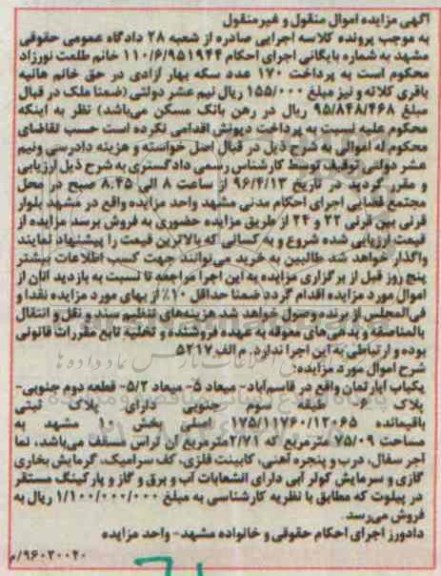 آگهی مزایده اموال منقول و غیرمنقول
به موجب پرونده کلاسه اجرایی صادره از شعبه ۲۸ دادگاه عمومی حقوقی
مشهد به شماره بایگانی اجرای احکام ۱۱۰/۶/۹۵۱۹۴۴ خانم طلعت نورزاد
محکوم است به پرداخت ۱۷۰ عدد سکه بهار آزادی در حق خانم هانیه
باقری کلاته و نیز مبلغ ۱۵۵/۰۰۰ ریال نیم عشر دولتی (ضمنا ملک در قبال
مبلغ ۹۵/۸۴۸/۴۶۸ ریال در رهن بانک مسکن می‌باشد) نظر به اینکه
محکوم علیه نسبت به پرداخت دیونش اقدامی نکرده است حسب تقاضای
محکوم له اموالی به شرح ذیل در قبال اصل خواسته و هزینه دادرسی ونیم
عشر دولتی توقیف توسط کارشناس رسمی دادگستری به شرح ذیل ارزیابی
و مقرر گردید در تاریخ ۹۶/۴/۱۳ از ساعت ۸ الی ۸.۴۵ صبح در محل
مجتمع قضایی اجرای احکام مدنی مشهد واحد مزایده واقع در مشهد بلوار
قرنی بین قرنی ۲۲ و ۲۴ از طریق مزایده حضوری به فروش برسد مزایده از
قیمت ارزیابی شده شروع و به کسانی که بالاترین قیمت را پیشنهاد نمایند
واگذار خواهد شد طالبین به خرید می‌توانند جهت کسب اطلاعات بیشتر
پنج روز قبل از برگزاری مزایده به این اجرا مراجعه تا نسبت به بازدید آنان از
اموال مورد مزایده اقدام گردد ضمنا حداقل ۱۰٪ از بهای مورد مزایده نقدا و
فی‌المجلس از برنده وصول خواهد شد هزینه‌های تنظیم سند و نقل و انتقال
بالمناصفه و بدهی‌های معوقه به عهده فروشنده و تخلیه تابع مقررات قانونی
بوده و ارتباطی به این اجرا ندارد. م الف ۵۲۱۷
شرح اموال مورد مزایده:
یکباب آپارتمان واقع در قاسم‌آباد- میعاد ۵- میعاد ۵/۲- قطعه دوم جنوبی-
پلاک ۶- طبقه سوم جنوبی دارای پلاک ثبتی
باقیمانده ۱۷۵/۱۱۷۶۰/۱۲۰۶۵ اصلی بخش ۱۰ مشهد به
مساحت ۷۵/۰۹ مترمربع که ۲/۷۱مترمربع آن تراس مسقف می‌باشد، نما
آجر سفال، درب و پنجره آهنی، کابینت فلزی، کف سرامیک، گرمایش بخاری
گازی و سرمایش کولر آبی دارای انشعابات آب و برق و گاز و پارکینگ مستقر
در پیلوت که مطابق با نظریه کارشناسی به مبلغ ۱/۱۰۰/۰۰۰/۰۰۰ ریال به
فروش می‌رسد.
دادورز اجرای احکام حقوقی و خانواده مشهد- واحد مزایده
۹۶۰۲۰۰۴۰/م